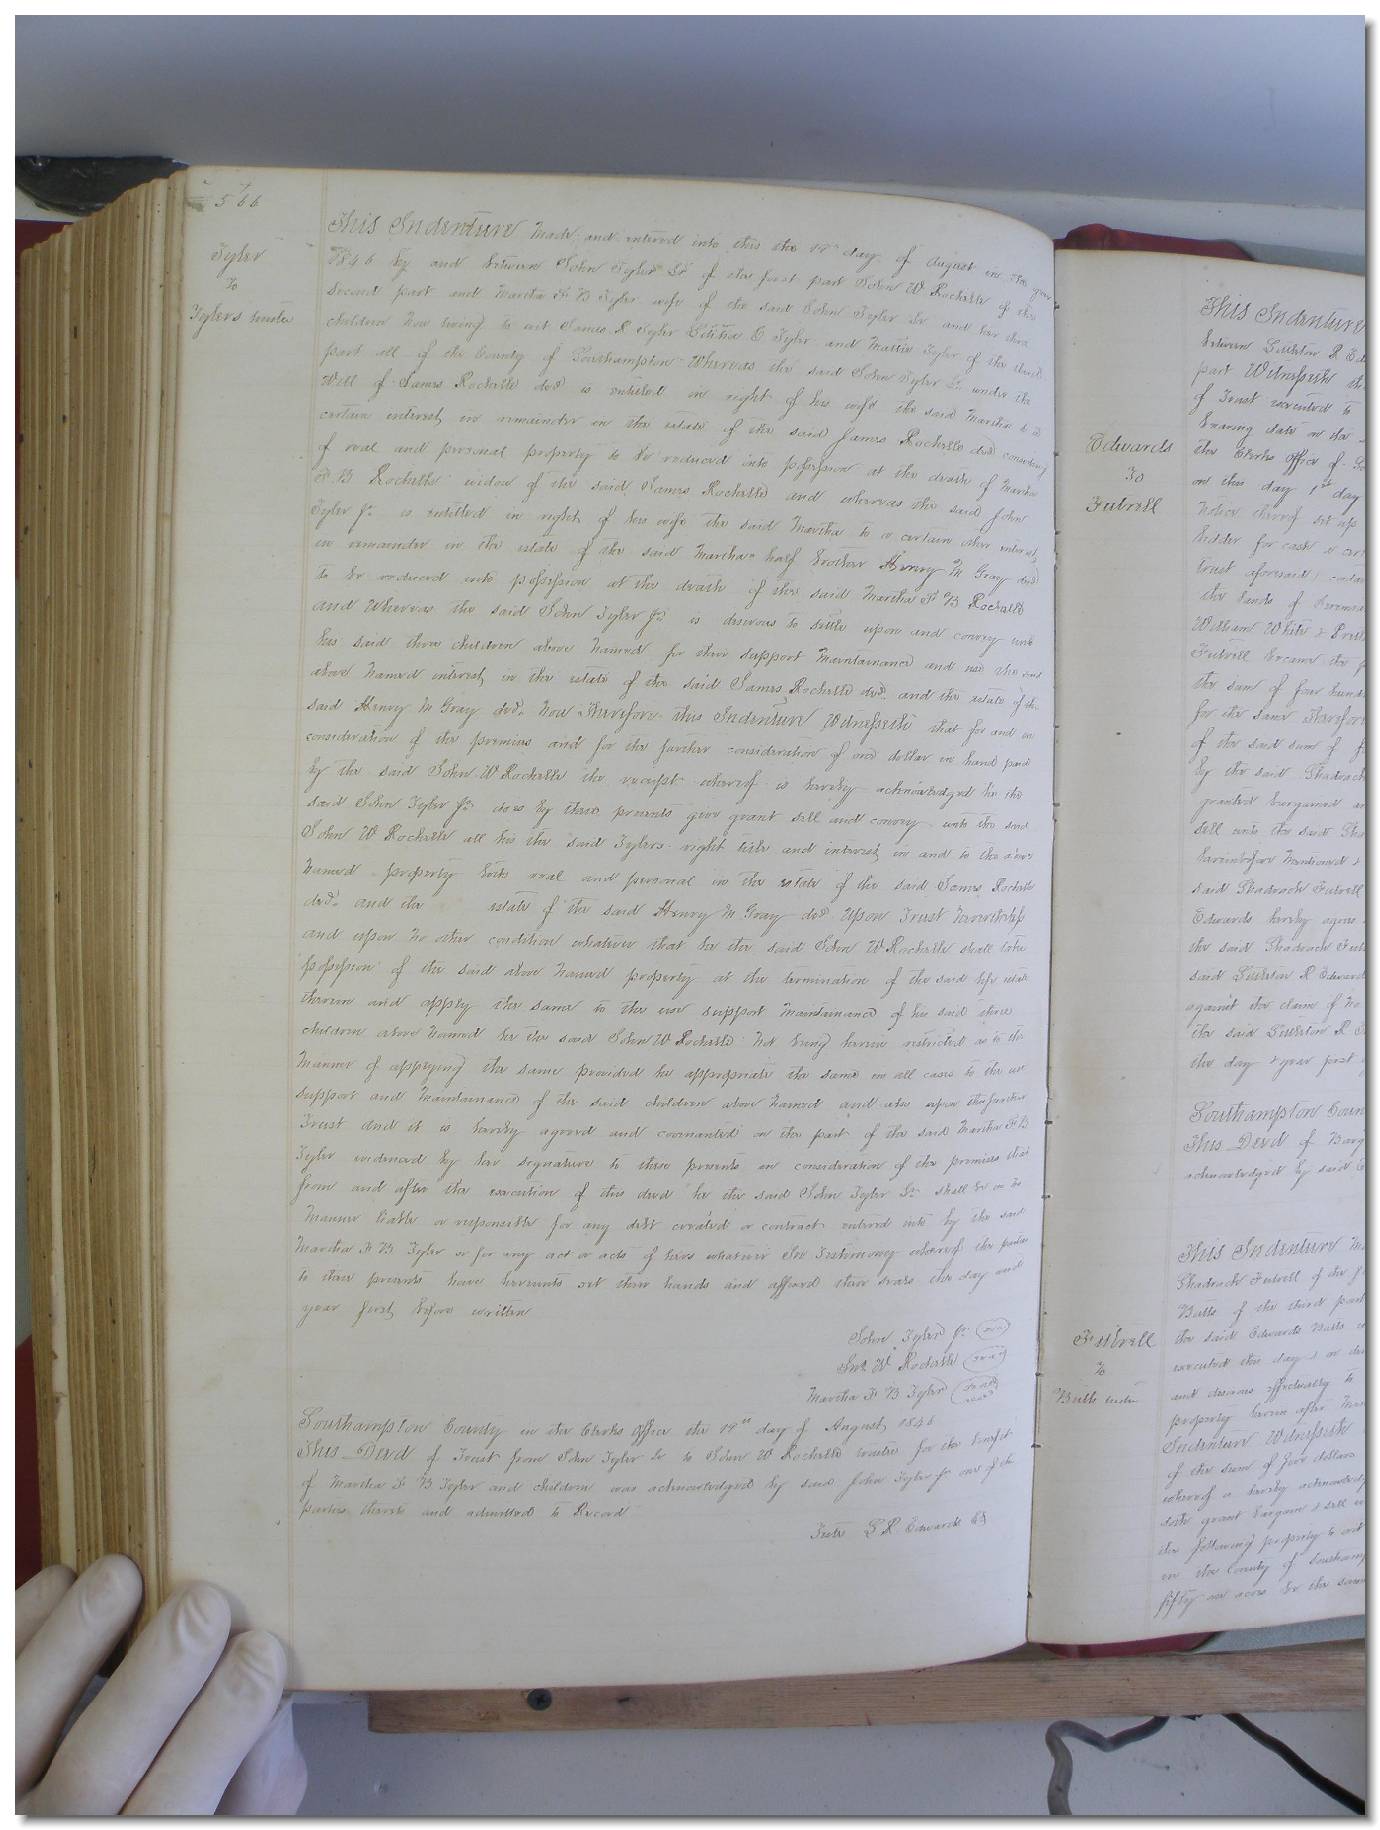 566
Tyler
To
Tylers trustee
This Indenture made and entered into this the 19th day of August in the year
1846 by and between John Tyler Jr of the first part John W Rochelle of the
second part and Martha F B Tyler wife of the said John Tyler Jr and her three
children now living to wit James R Tyler Letitia C Tyler and Mattie Tyler of the third
part all of the County of Southampton Whereas the said John Tyler Jr under the
Will of James Rochelle decd is entitled in right of his wife the said Martha to a
certain interest in remainder in the estate of the said James Rochelle decd consisting
of real and personal property to be reduced into possession at the death of Martha
F B Rochelle widow of the said James Rochelle and whereas the said John
Tyler Jr is entitled in right of his wife the said Martha to a certain other interest
in remainder in the estate of the said Martha's half brother Henry M Gray decd
to be reduced into possession at the death of the said Martha F B Rochelle
and Whereas the said John Tyler Jr is desirous to settle upon and convey unto
his said three children above named for their support maintainance and use the said
above named interest in the estate of the said James Rochelle decd and the estate of the
said Henry M Gray decd Now Therefore this Indenture Witnesseth that for and in
consideration of the premises and for the further consideration of one dollar in hand paid
by the said John W Rochelle the receipt whereof is hereby acknowledged he the
said John Tyler Jr does by these presents give grant sell and convey unto the said
John W Rochelle all his the said Tylers right title and interest in and to the above
named property both real and personal in the estate of the said James Rochelle
decd and the estate of the said Henry M Gray decd Upon Trust nevertheless
and upon no other condition whatever that he the said John W Rochelle shall take
possession of the said above named property at the termination of the said life estate
therein and apply the same to the use support maintainance of his said three
children above named he the said John W Rochelle not being herein restricted as to the
manner of applying the same provided he appropriate the same in all cases to the use
support and maintainance of the said children above named and also upon the further
Trust and it is hereby agreed and covenanted on the part of the said Martha F B
Tyler evidenced by her signature to these presents in consideration of the premises that
from and after the execution of this deed he the said John Tyler Jr shall be in no
manner liable or responsible for any debt created or contract entered into by the said
Martha F B Tyler or for any act or acts of hers whatever In Testimony whereof the parties
to these presents have hereunto set their hands and affixed their seals the day and
year first before written
John Tyler Jr (seal)
Jno W Rochelle (seal)
Martha F B Tyler (seal)
Southampton County in the Clerks office the 19th day of August 1846
This Deed of Trust from John Tyler Jr to John W Rochelle trustee for the benefit
of Martha F B Tyler and children was acknowledged by said John Tyler Jr one of the
parties thereto and admitted to Record
Teste L R Edwards Clk
Edwards
To
Futrell
This Indenture
between Littleton R Ed
part Witnesseth th
of Trust executed to
bearing date on the
the Clerks office of So
on this day 1st day
notice thereof set up
bidder for cash a cer
trust aforesaid
the lands of
William White &
Futrell became the p
the sum of four hund
for the same Therefore
of the said sum of f
by the said Shadrach
granted bargained an
sell unto the said Sha
hereinbefore mentioned &
said Shadrach Futrell
Edwards hereby agree
the said Shadrach Fut
said Littleton R Edward
against the claim of no
the said Littleton R E
the day & year first
Southampton Coun
This Deed of Barg
acknowledged by said
Futrell
To
Butts trustee
This Indenture Ma
Shadrach Futrell of the f
Butts of the third part
the said Edwards Butts
executed this day & on de
and desirous effectually to
property herein after men
Indenture Witnesseth
of the sum of five dollars
whereof is hereby acknowled
doth grant bargain & sell
the following property to wit
in the County of Southamp
fifty one acres be the same